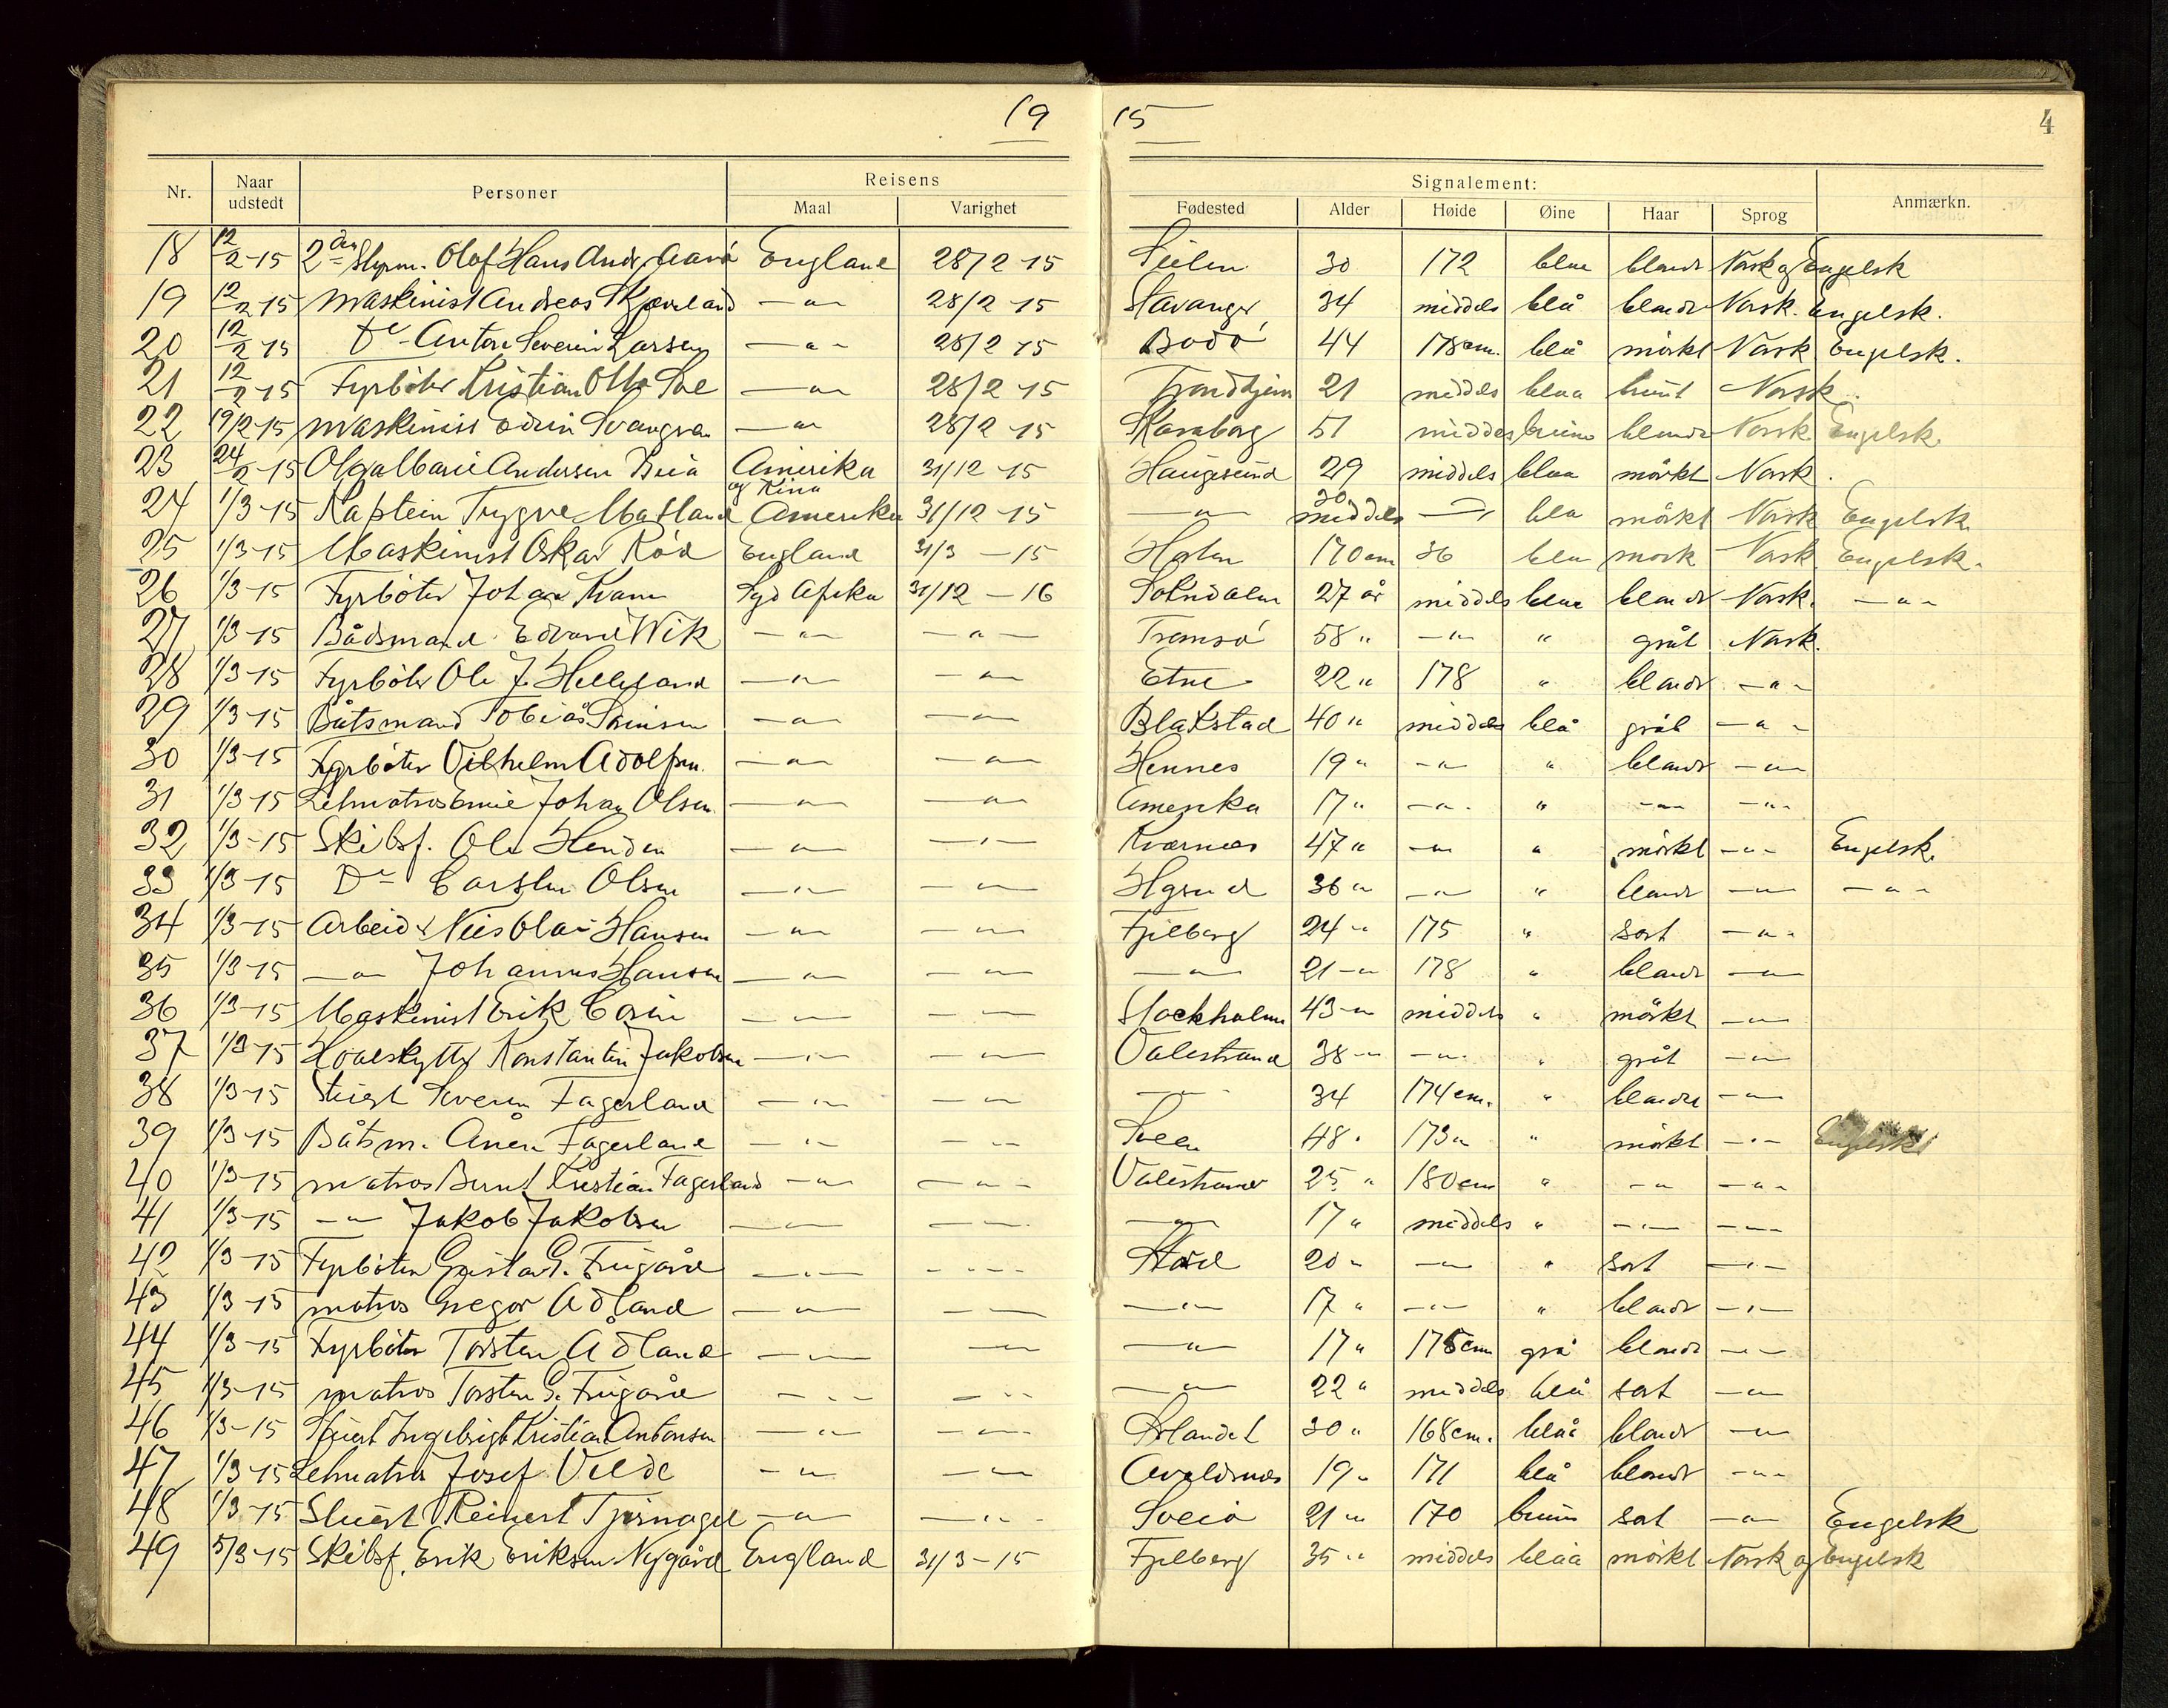 19 15
4
Nr. Naar udstedt Personer Reisens Maal Varighet Signalement: Fødested Alder Høide Øine Haar Sprog Anmærkn.
18 12/2-15 2den Styrm. Olaf Hans Andr. England 28/2 15 30 172 blaa blondt Norsk og Engelsk
19 12/2 15 Maskinist Andreas —"— 28/2 15 Stavanger 34 middels blå blondt Norsk. Engelsk.
20 12/2 15 Do Anton Severin Larsen —"— 28/2 15 Bodö 44 178 cm. blå mörkt Norsk Engelsk.
21 12/2-15 Fyrböter Kristian Otto —"— 28/2 15 Trondhjem 21 middels blaa brunt Norsk
22 19/2-15 Maskinist Edvin —"— 28/2 15 51 middels brune blondt Norsk Engelsk
23 24/2-15 Olga Marie Andersen Amerika og Kina 31/12 15 Haugesund 29 middels blaa mörkt Norsk.
24 1/3-15 Kaptein Trygve Matland Amerika 31/12 15 —"— 30 middels —"— blaa mörkt Norsk Engelsk
25 1/3-15 Maskinist Oskar Röd England 31/3 — 15 170 cm 36 blaa mörk Norsk Engelsk.
26 1/3-15 Fyrböter Johan Syd Afrika 31/12 — 16 27 år middels blaa blondt Norsk. —"—
27 1/3-15 Bådsmand Edvard Wik —"— —"— Tromsö 58 " —"— " gråt Norsk.
28 1/3-15 Fyrböter Ole J. Helleland —"— —"— Etne 22 " 178 " blondt —"—
29 1/3-15 Båtsmand Tobias —"— —"— Blakstad 40 " middels blå gråt —"—
30 1/3-15 Fyrböter Vilhelm Adolfsen. —"— —"— Hennes 19 " —"— " blondt —"—
31 1/3-15 Letmatros Johan Olsen. —"— —"— Amerika 17 " —"— " —"— —"—
32 1/3-15 Skibsf. Ole Henden —"— —"— Kvernes 47 " —"— " mörkt —"— Engelsk.
33 1/3-15 Do Carsten Olsen —"— —"— 36 " —"— " blondt —"— —"—
34 1/3-15 Arbeider Nils Olai Hansen —"— —"— Fjelberg 24 " 175 " sort —"—
35 1/3-15 —"— Johannes Hansen —"— —"— —"— 21 —"— 178 " blondt —"—
36 1/3-15 Maskinist Erik —"— —"— Stockholm 43 —"— middels " mörkt —"—
37 1/3-15 Hvalskytter Konstantin Jakobsen —"— —"— Valestrand 38 —"— —"— " gråt —"—
38 1/3-15 Stuert Severin Fagerland —"— —"— —"— 34 174 cm. " blondt —"—
39 1/3-15 Båtsm. Fagerland —"— —"— Sveen 48 " 173 " " mörkt —"— Engelsk
40 1/3-15 matros Bernt Kristian Fagerland —"— —"— Valestrand 25 " 180 cm " —"— —"—
41 1/3-15 —"— Jakob Jakobsen —"— —"— —"— 17 " middels " —"— —"—
42 1/3-15 Fyrböter Gustav G. Frugård —"— —"— Stord 20 " —"— " sort —"—
43 1/3-15 matros Gregor Adland —"— —"— —"— 17 " —"— " blondt —"—
44 1/3-15 Fyrböter Torsten Adland —"— —"— —"— 17 " 175 cm grå blondt —"—
45 1/3-15 matros Torsten G. Frugård —"— —"— —"— 22 " middels blå sort —"—
46 1/3-15 Stuert Ingebrigt Kristian Antonsen —"— —"— Ørlandet 30 " 168 cm. blåå blondt —"—
47 1/3-15 Letmatros Josef Velde —"— —"— Avaldsnes 19 " 171 blå blondt —"—
48 1/3-15 Stuert Reinert Tjernagel —"— —"— Sveio 21 " 170 brun sort —"— Engelsk
49 5/3-15 Skibsf. Erik Eriksen Nygård England 31/3-15 Fjelberg 35 " middels blåå mörkt Norsk og Engelsk